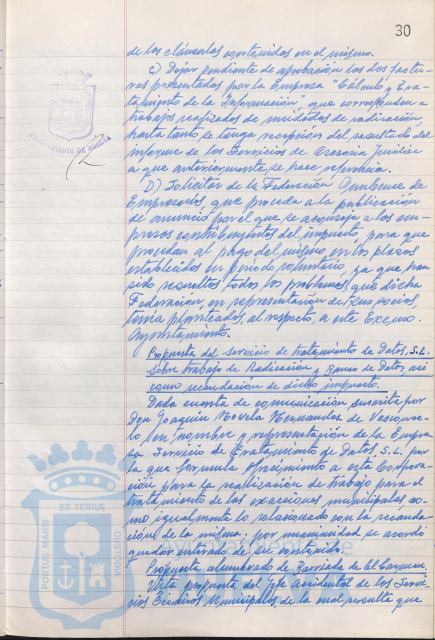 30
de los elementos contenidos en el mismo.
C) Dejar pendiente de aprobación las dos factu-
ras presentadas por la Empresa "Cálculo y Tra-
tamiento de la Información", que corresponden a
trabajos realizados de unidades de radicación,
hasta tanto se tenga recepción del resultado del
informe de los Servicios de Asesoría Jurídica
a que anteriormente se hace referencia.
D) Solicitar de la Federación Onubense de
Empresarios, que proceda a la publicación
de anuncio por el que se aconseja a las em-
presas contribuyentes del impuesto, para que
procedan al pago del mismo, en los plazos
establecidos en período voluntario, ya que han
sido resueltos todos los problemas que dicha
Federación, en representación de sus socios,
tenía planteados, al respecto, a este Excmo.
Ayuntamiento.
Propuesta del servicio de tratamiento de Datos, S.L.
sobre trabajo de Radicación y Banco de Datos, así
como recaudación de dicho impuesto.
Dada cuenta de comunicación suscrita por
Don Joaquín Novela Hernandez de
en nombre y representación de la Empre-
sa Servicio de Tratamiento de Datos S.L. por
la que formula ofrecimiento a esta Corpora-
ción para la realización de trabajo para el
tratamiento de las exacciones municipales co-
mo igualmente lo relacionado con la recauda-
ción de la misma; por unanimidad se acordó
quedar enterado de su contenido.
Propuesta alumbrado de Barriada de El Carmen.
Vista propuesta del Jefe accidental de los Servi-
cios Técnicos Municipales de la cual resulta que
AYUNTAMIENTO DE HUELVA
PORTUS MARIS ET TERRAE CUSTODIA